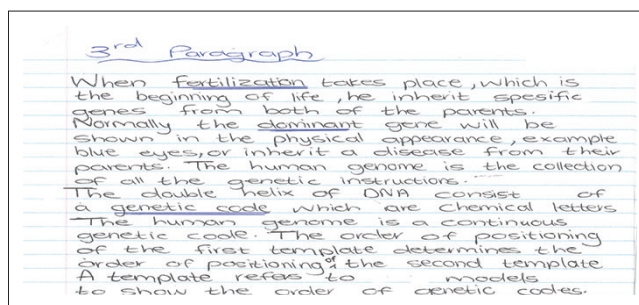 3rd Paragraph
When fertilization takes place, which is
the beginning of life, he inherit spesific
genes from both of the parents.
Normally the dominant gene will be
shown in the physical appearance, example
blue eyes, or inherit a disease from their
parents. The human genome is the collection
of all the genetic instructions.
The double helix of DNA consist of
a genetic code which are chemical letters
The human genome is a continuous
genetic code. The order of positioning
of the first template determines the
order of positioning of the second template
A template refers to models
to show the order of genetic codes.